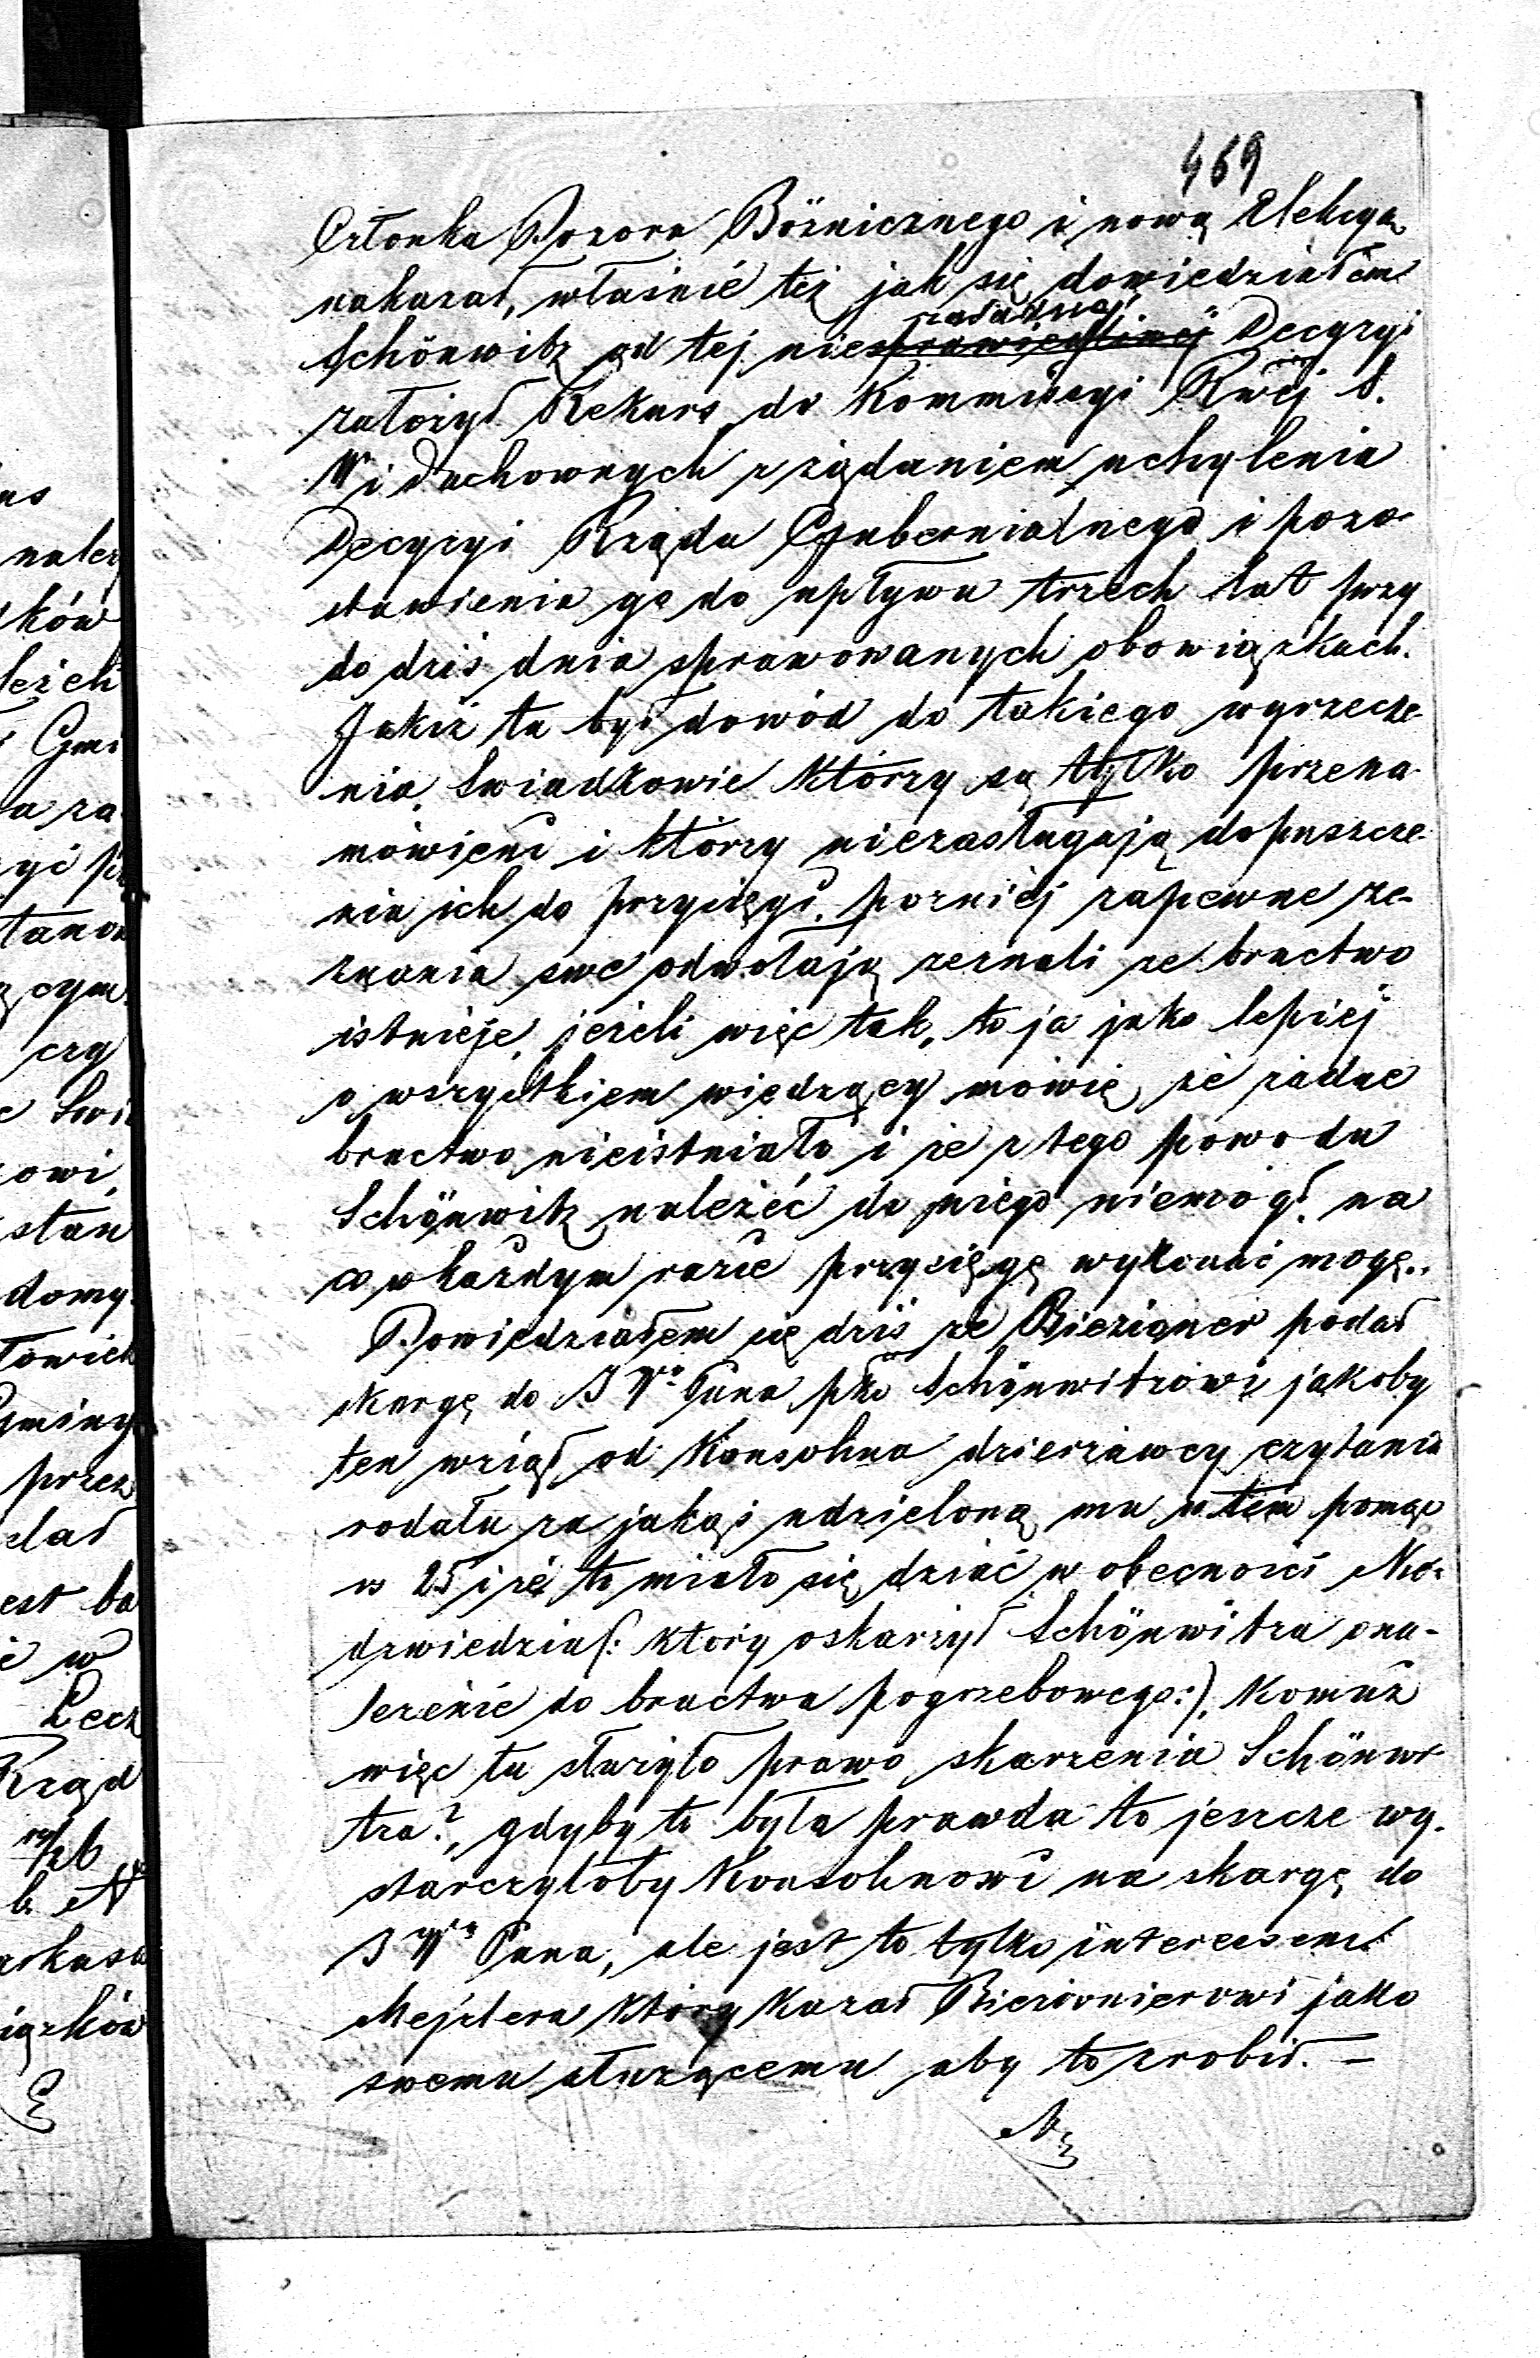 469
Członka Dozoru Bóżnicznego i nową Elekcyą
nakazał, właśnie też jak się dowiedziałem
Schönwitz od tej nie Decyzyi
założył Rekurs do Kommissyi Rwej S.
W i Duchownych z żądaniem uchylenia
Decyzyi Rządu Gubernialnego i pozo-
stawienia go do upływu trzech lat przy
do dziś dnia sprawowanych obowiązkach.
Jakiż tu był dowód do takiego wyrzecze-
nia, Swiadkowie którzy są tylko przena-
mówieni i którzy niezasługują dopuszcze-
nia ich do przysięgi, pozniej zapewne ze-
znania swe odwołają zeznali ze bractwo
istnieje, jeżeli więc tak, to ja jako lepiej
o wszystkiem wiedzący mówię, że żadne
bractwo nieistniało i że z tego powodu
Schönwitz należeć do niego niemógł, na
co w każdym razie przysięgę wykonać mogę..
Dowiedziałem się dziś że Biezigner podał
skargę do JWo Pana pko Schönwitzowi jakoby
ten wziął od Konsohna dzierżawcy czytania
rodału za jakąś udzieloną mu w tem pomoc
rs 25 i że to miało się dziać w obecności Nie-
dzwiedzia (: który oskarżył Schönwitza o na-
leżenie do bractwa pogrzebowego:), Komuż
więc tu służyło prawo skarżenia Schönwi-
tza?, gdyby to była prawda to jeszcze wy-
starczyłoby Konsohnowi na skargę do
JWo Pana, ale jest to tylko interessem
Mejstera który kazał Biezonierowi jako
swemu służącemu aby to zrobił. –